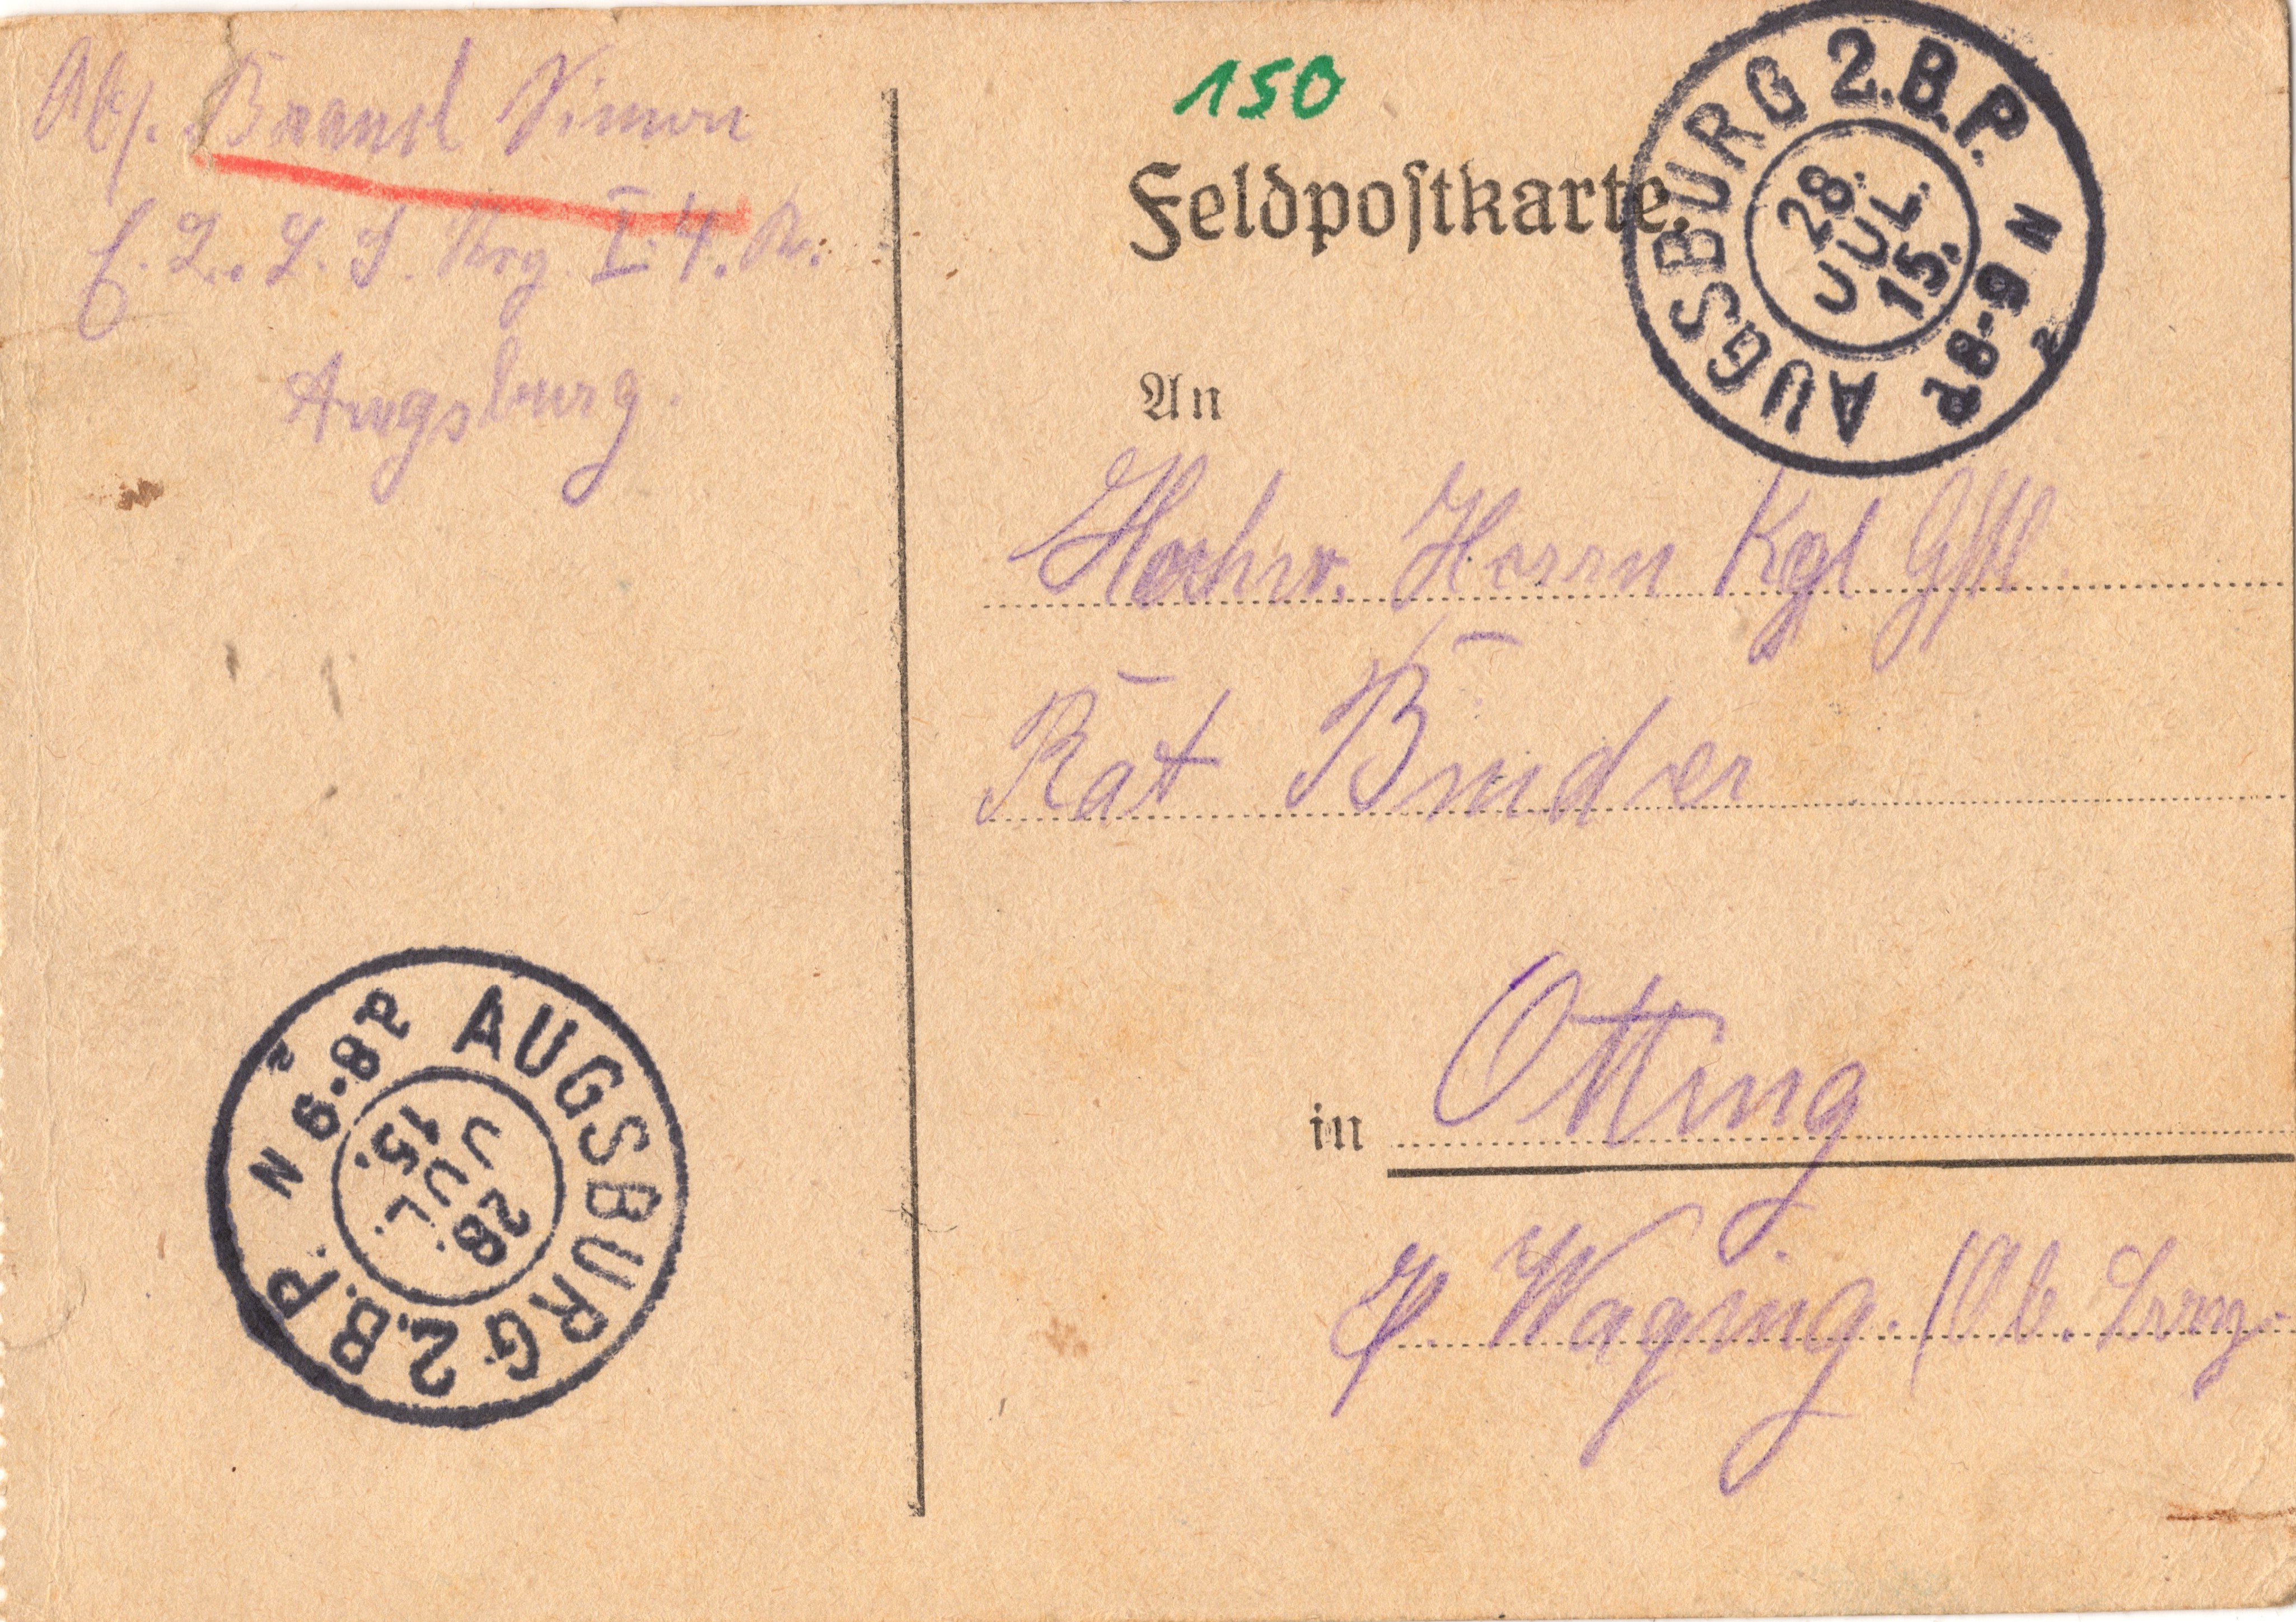 Abs. Brandl Simon
E. L. L. I. Reg. I. 4. K.
Augsburg.
150
Feldpostkarte.
AUGSBURG 2.B.P.
28.
JUL.
15.
8-9 N
An
Hochw. Herrn Kgl Gstl.
Rat Binder
in Otting
P. Waging.
AUGSBURG 2.B.P.
28.
JUL.
15.
8-9 N